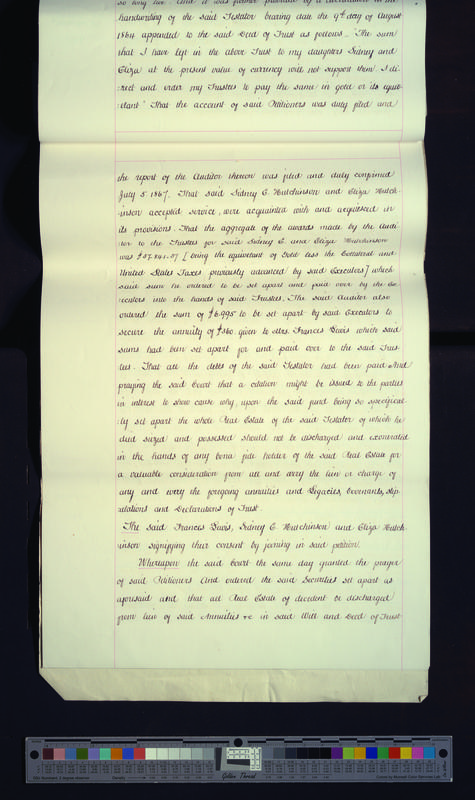 so long live. And it was further provided by a declaration in the
handwriting of the said Testator bearing date the 9th day of August
1864 appended to the said Deed of Trust as follows. "The sum
that I have left in the above Trust to my daughters Sidney and
Eliza at the present value of currency will not support them. I di-
rect and order my Trustees to pay the same in gold or its equiv-
elant" That the account of said Petitioners was duly filed and
the report of the Auditor thereon was filed and duly confirmed
July 5. 1867. That said Sidney E. Hutchinson and Eliza Hutch-
inson accepted service, were acquainted with and acquiesced in
its provisions. That the aggregate of the awards made by the Audi-
tor to the Trustees for said Sidney E. and Eliza Hutchinson
was [being the equivalent of Gold less the Collateral and
United States Taxes previously advanced by said Executors] which
said sum he ordered to be set apart and paid over by the Ex-
ecutors into the hands of said Trustees. The said Auditor also
ordered the sum of $6.995 to be set apart by said Executors to
secure the annuity of $360. given to Mrs. Frances Lewis which said
sums had been set apart for and paid over to the said Trus-
tees. That all the debts of the said Testator had been paid And
praying the said Court that a citation might be issued to the parties
in interest to show cause why, upon the said fund being so specifical-
ly set apart the whole Real Estate of the said Testator of which he
died seized and possessed should not be discharged and exonerated
in the hands of any bona fide holder of the said Real Estate for
a valuable consideration from all and every the lien or charge of
any and every the foregoing annuities and Legacies, Covenants, stip-
ulations and Declarations of Trust.
The said Frances Lewis, Sidney E. Hutchinson and Eliza Hutch-
inson signifying their consent by joining in said petition.
Whereupon the said Court the same day granted the prayer
of said Petitioners And ordered the said Securities set apart as
aforesaid and that all Real Estate of decedent be discharged
from lien of said Annuities &c in said Will and Deed of Trust
Golden Thread